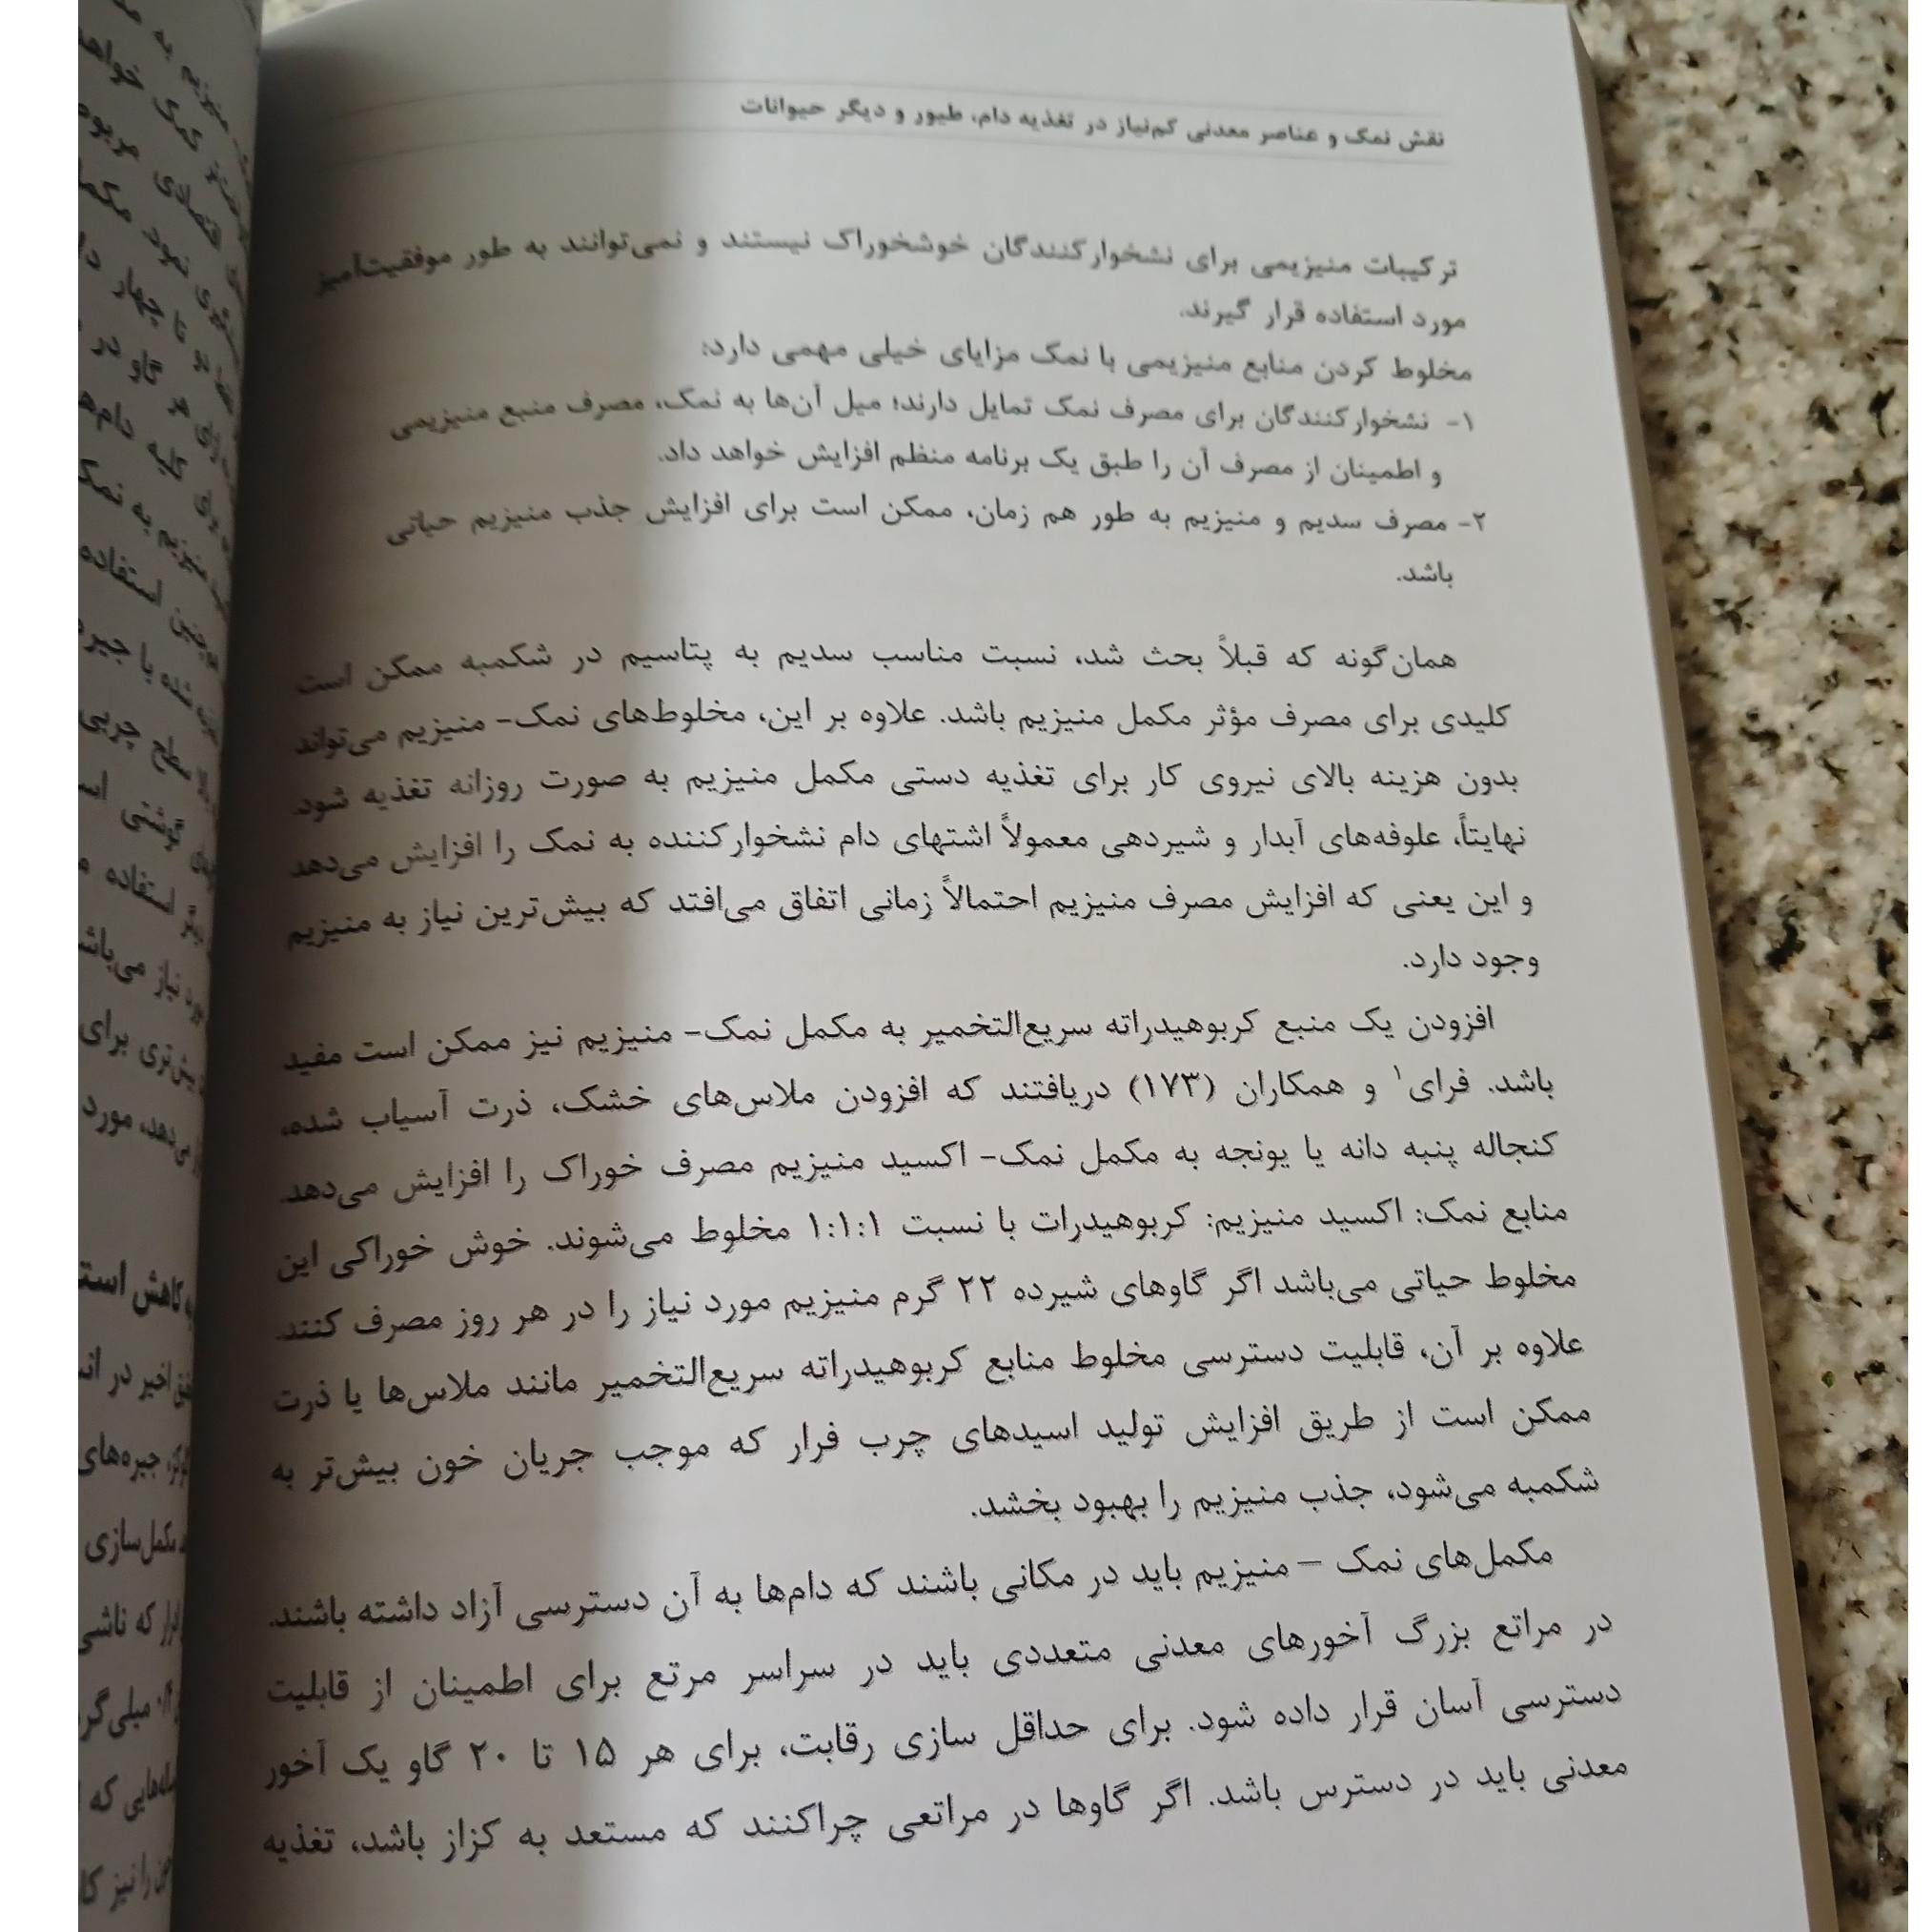 نقش نمک و عناصر معدنی کم‌نیاز در تغذیه دام، طیور و دیگر حیوانات
ترکیبات منیزیمی برای نشخوارکنندگان خوشخوراک نیستند و نمی‌توانند به طور موفقیت‌آمیز
مورد استفاده قرار گیرند.
مخلوط کردن منابع منیزیمی با نمک مزایای خیلی مهمی دارد:
۱- نشخوارکنندگان برای مصرف نمک تمایل دارند؛ میل آن‌ها به نمک، مصرف منبع منیزیمی
و اطمینان از مصرف آن را طبق یک برنامه منظم افزایش خواهد داد.
۲- مصرف سدیم و منیزیم به طور هم زمان، ممکن است برای افزایش جذب منیزیم حیاتی
باشد.
همان‌گونه که قبلاً بحث شد، نسبت مناسب سدیم به پتاسیم در شکمبه ممکن است
کلیدی برای مصرف مؤثر مکمل منیزیم باشد. علاوه بر این، مخلوط‌های نمک- منیزیم می‌تواند
بدون هزینه بالای نیروی کار برای تغذیه دستی مکمل منیزیم به صورت روزانه تغذیه شود.
نهایتاً، علوفه‌های آبدار و شیردهی معمولاً اشتهای دام نشخوارکننده به نمک را افزایش می‌دهد
و این یعنی که افزایش مصرف منیزیم احتمالاً زمانی اتفاق می‌افتد که بیش‌ترین نیاز به منیزیم
وجود دارد.
افزودن یک منبع کربوهیدراته سریع‌التخمیر به مکمل نمک- منیزیم نیز ممکن است مفید
باشد. فرای۱ و همکاران (۱۷۳) دریافتند که افزودن ملاس‌های خشک، ذرت آسیاب شده،
کنجاله پنبه دانه یا یونجه به مکمل نمک- اکسید منیزیم مصرف خوراک را افزایش می‌دهد.
منابع نمک: اکسید منیزیم: کربوهیدرات با نسبت ۱:۱:۱ مخلوط می‌شوند. خوش خوراکی این
مخلوط حیاتی می‌باشد اگر گاوهای شیرده ۲۲ گرم منیزیم مورد نیاز را در هر روز مصرف کنند.
علاوه بر آن، قابلیت دسترسی مخلوط منابع کربوهیدراته سریع‌التخمیر مانند ملاس‌ها یا ذرت
ممکن است از طریق افزایش تولید اسیدهای چرب فرار که موجب جریان خون بیش‌تر به
شکمبه می‌شود، جذب منیزیم را بهبود بخشد.
مکمل‌های نمک – منیزیم باید در مکانی باشند که دام‌ها به آن دسترسی آزاد داشته باشند.
در مراتع بزرگ آخورهای معدنی متعددی باید در سراسر مرتع برای اطمینان از قابلیت
دسترسی آسان قرار داده شود. برای حداقل سازی رقابت، برای هر ۱۵ تا ۲۰ گاو یک آخور
معدنی باید در دسترس باشد. اگر گاوها در مراتعی چراکنند که مستعد به کزاز باشد، تغذیه